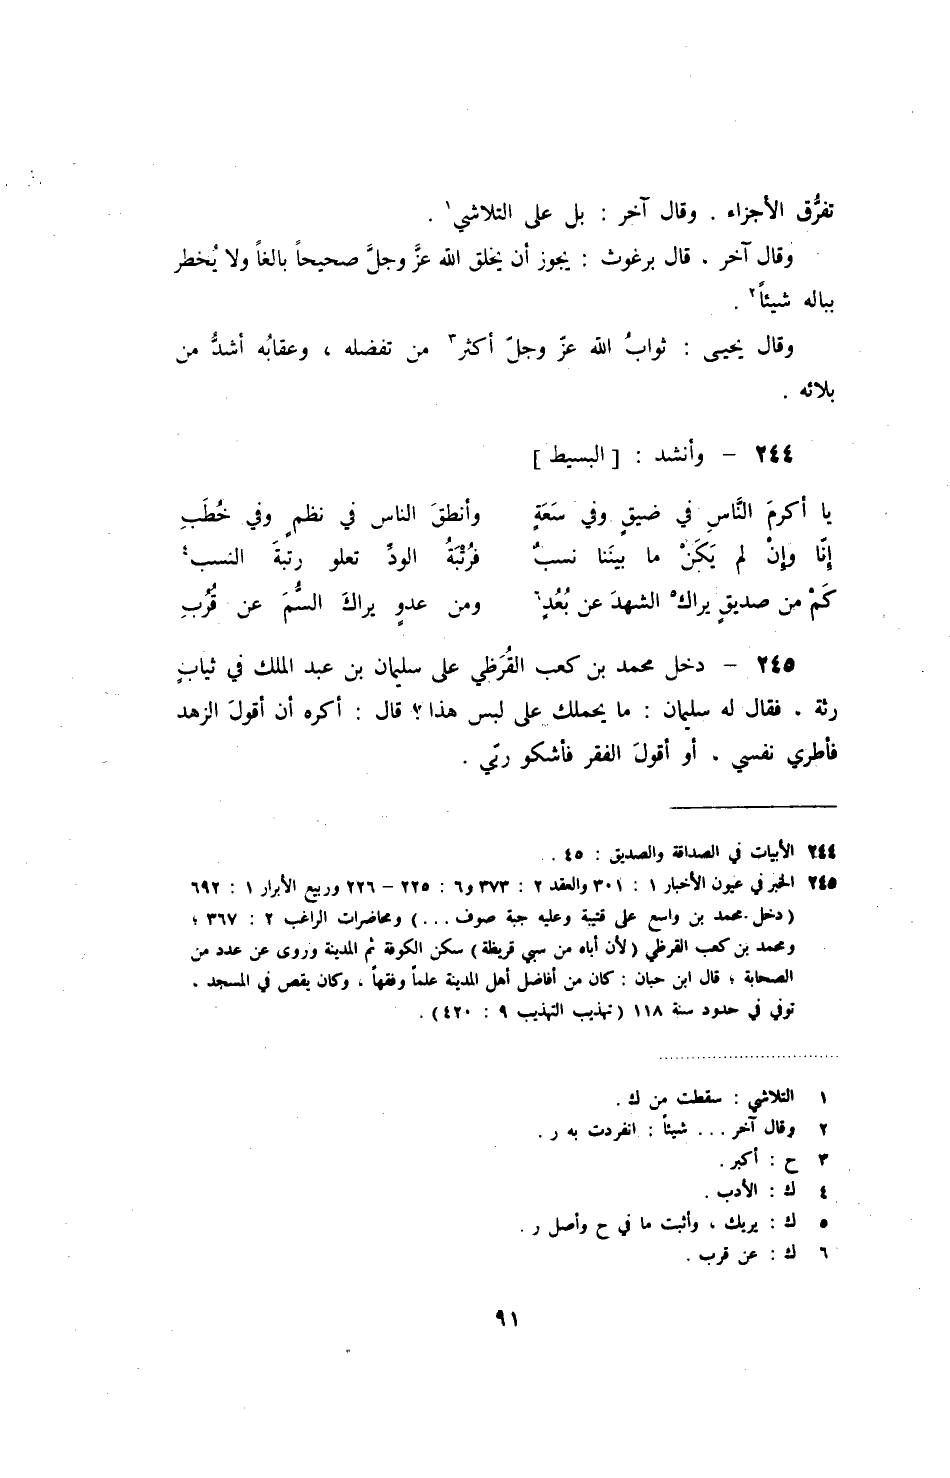 تفرُّق الأجزاء . وقال آخر : بل على التلاشي١ .
وقال آخر . قال برغوث : يجوز أن يخلق الله عزَّ وجلَّ صحيحاً بالغاً ولا يُخطر
بباله شيئاً٢ .
وقال يحيى : ثوابُ الله عزّ وجلّ أكثر٣ من تفضله ، وعقابُه أشدُّ من
بلائه .
٢٤٤ – وأنشد : [ البسيط ]
يا أكرمَ النَّاسِ في ضيقٍ وفي سَعَةٍ وأنطقَ الناس في نظمٍ وفي خُطَبِ
إنّا وإنْ لم يَكَنْ ما بينَنا نسبٌ فرُتْبَةُ الودِّ تعلو رتبةَ النسب٤
كَمْ من صديقٍ يراك٥ الشهدَ عن بُعُدٍ٦ ومن عدوٍ يراكَ السُّمَ عن قُرُبِ
٢٤٥ – دخل محمد بن كعب القُرَظي على سليمان بن عبد الملك في ثيابٍ
رثة . فقال له سليمان : ما يحملك على لبس هذا ؟ قال : أكره أن أقولَ الزهد
فأطري نفسي . أو أقولَ الفقر فأشكو ربّي .
٢٤٤ الأبيات في الصداقة والصديق : ٤٥ .
٢٤٥ الخبر في عيون الأخبار ١ : ٣٠١ والعقد ٢ : ٣٧٣ و٦ : ٢٢٥ – ٢٢٦ وربيع الأبرار ١ : ٦٩٢
( دخل محمد بن واسع على قتيبة وعليه جبة صوف ... ) ومحاضرات الراغب ٢ : ٣٦٧ ؛
ومحمد بن كعب القرظي ( لأن أباه من سبي قريظة ) سكن الكوفة ثم المدينة وروى عن عدد من
الصحابة ؛ قال ابن حبان : كان من أفاضل أهل المدينة علماً وفقهاً ، وكان يقص في المسجد .
توفي في حدود سنة ١١٨ ( تهذيب التهذيب ٩ : ٤٢٠ ) .
١ التلاشي : سقطت من ك .
٢ وقال آخر ... شيئاً : انفردت به ر .
٣ ح : أكبر .
٤ ك : الأدب .
٥ ك : يريك ، وأثبت ما في ح وأصل ر .
٦ ك : عن قرب .
٩١